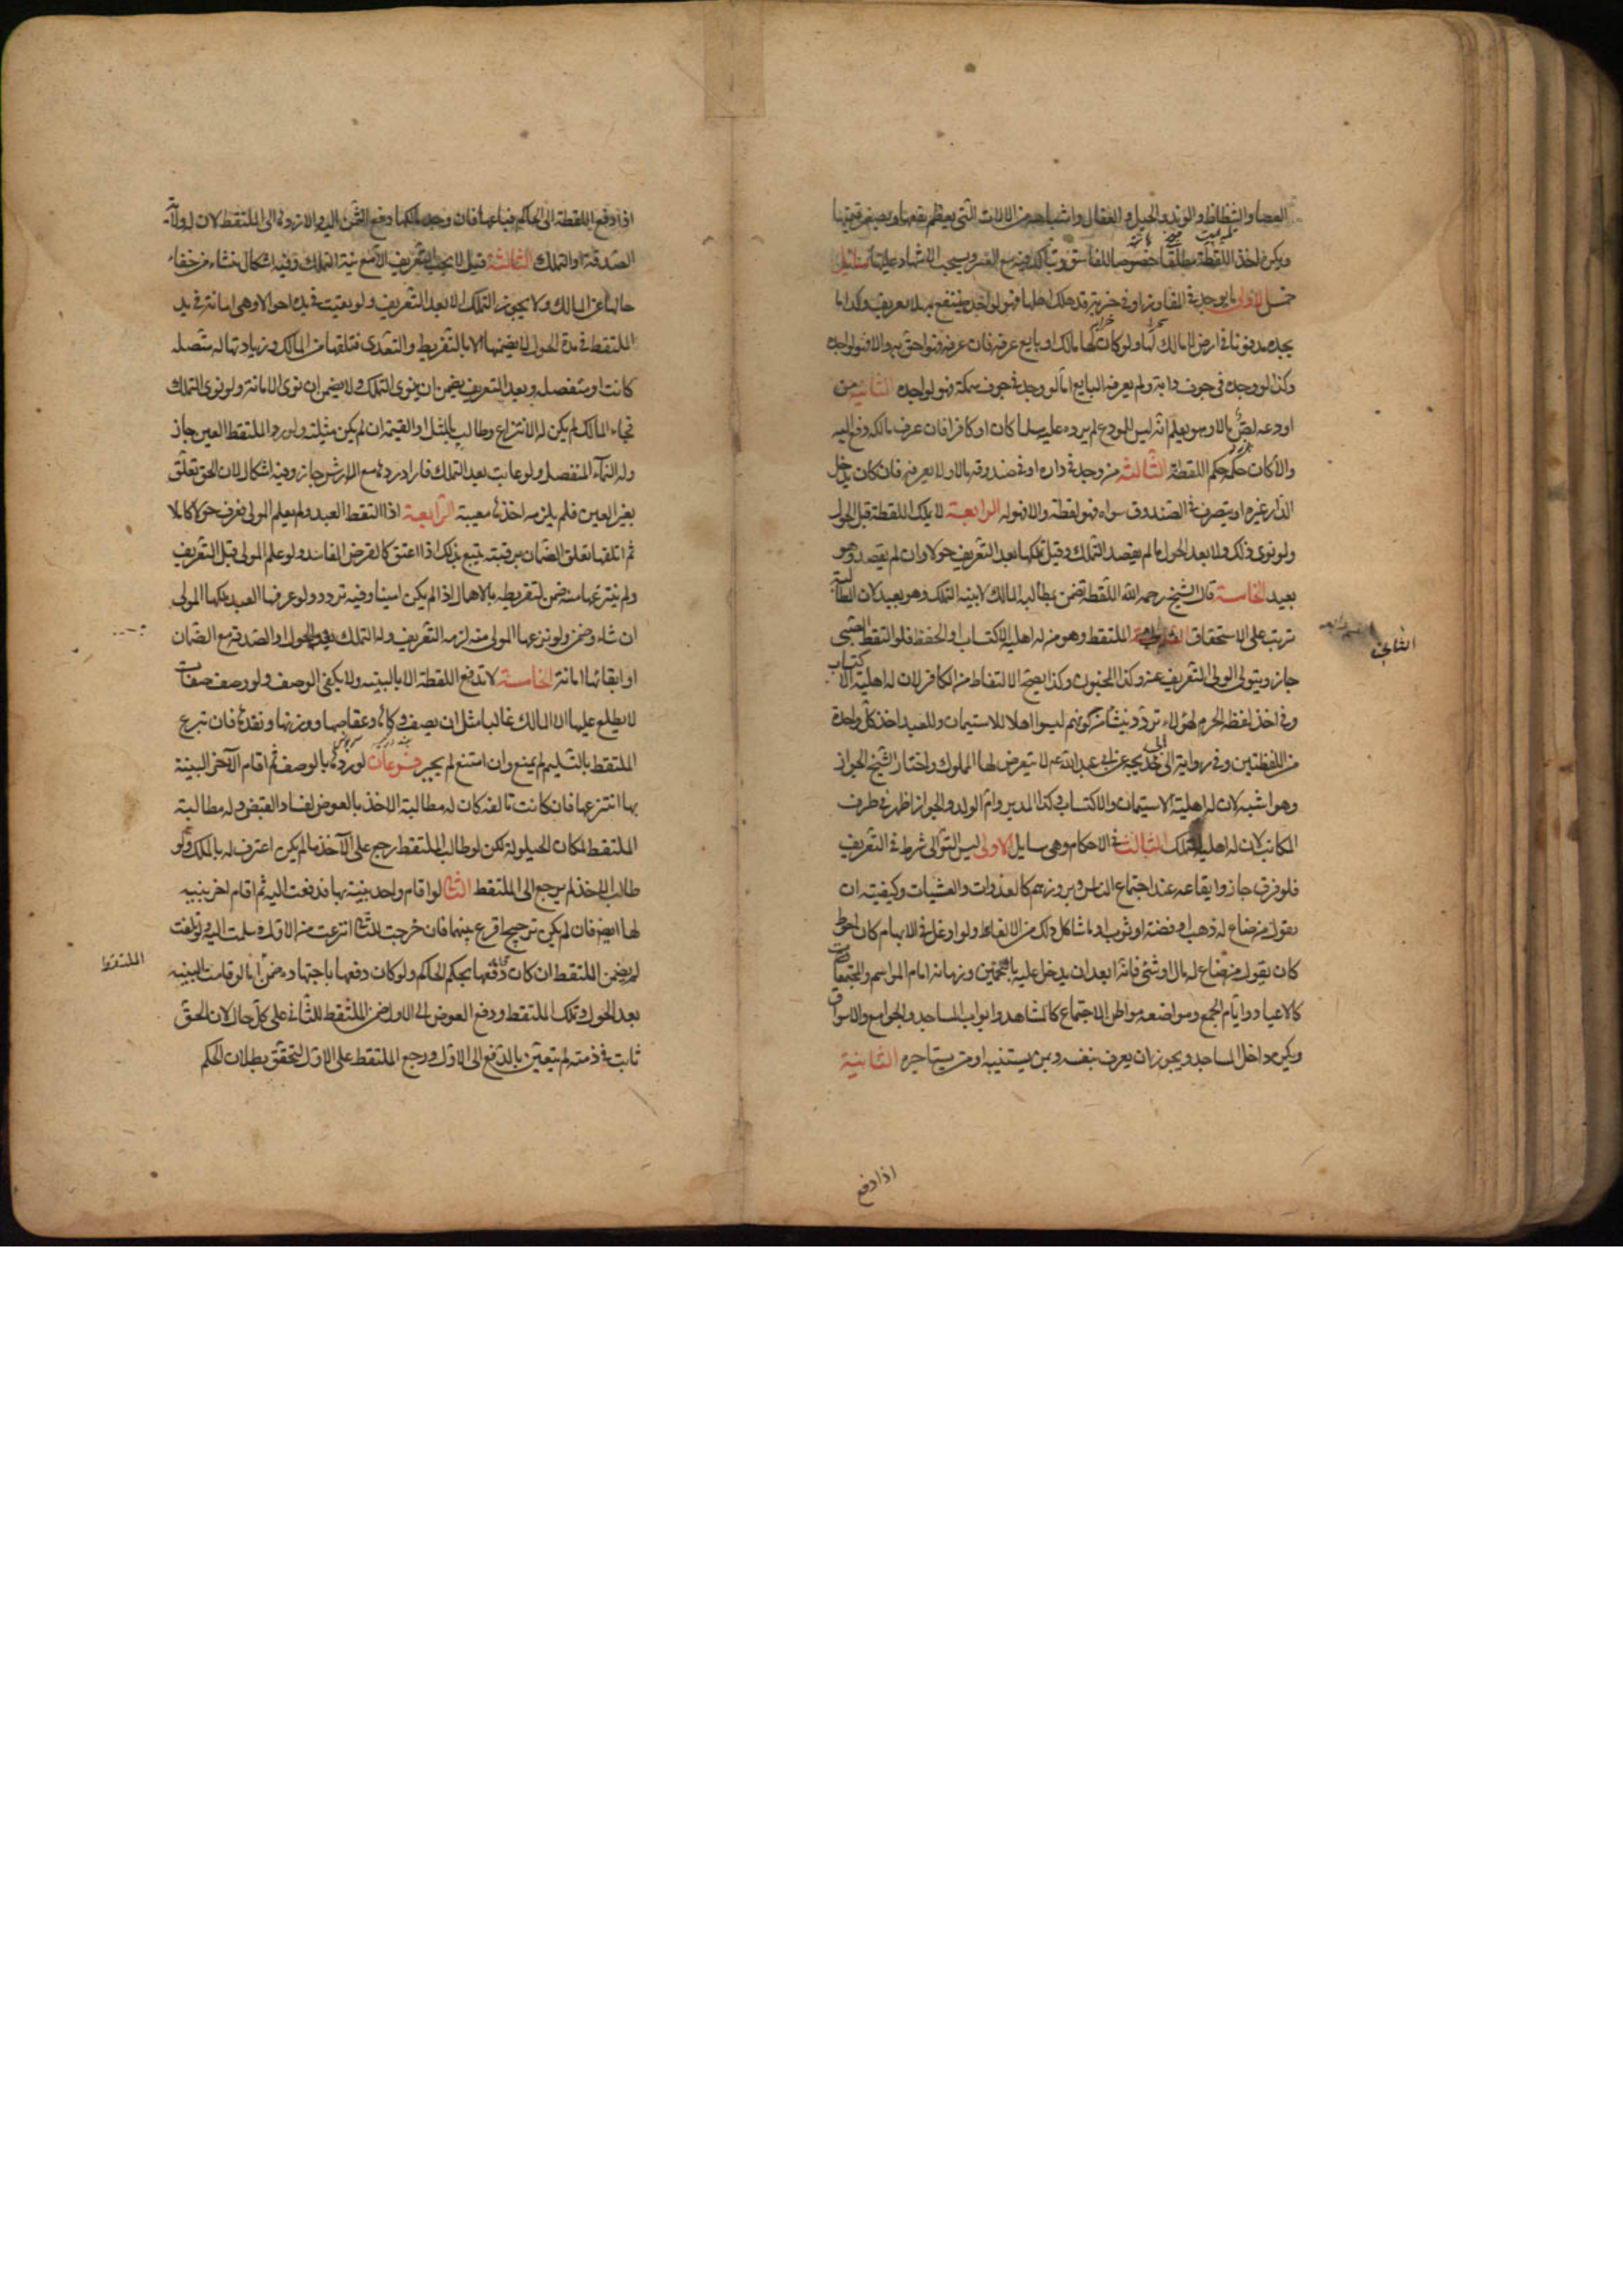 العصا والشظاظ والوتد والحبل والعقال واشباهه من الالات التي يعظم نفعها ويصغر قيمتها
ويكره اخذ اللقطة مطلقا خصوصا للفاسق ويتأكد فيه مع العسر ويستحب الاشهاد عليها مسائل
خمس الاولى ما يوجد في المفاوز او في خربة قد هلك اهلها فهو لواجده ينتفع به بلا تعريف وكذا ما
يجده مدفونا في ارض لا مالك لها ولو كان لها مالك او بايع عرفه فان عرفه فهو احق به والا فهو لواجده
وكذا لو وجده في جوف دابة ولم يعرفه البايع اما لو وجد في جوف سمكة فهو لواجده الثانية من
اودعه لص مالا وهو يعلم انه ليس للمودع لم يرده عليه مسلما كان او كافرا فان عرف مالكه دفع اليه
والا كان حكمه حكم اللقطة الثالثة من وجد في داره او في صندوقه مالا ولا يعرفه فان كان يدخل
الدار غيره او يتصرف في الصندوق سواه فهو لقطة والا فهو له الرابعة لا يملك اللقطة قبل الحول
ولو نوى ذلك ولا بعد الحول ما لم يقصد التملك وقيل تملكها بعد التعريف حولا وان لم يقصد وهو
بعيد الخامسة قال الشيخ رحمه الله اللقطة تضمن بمطالبه المالك لا بنيه التملك وهو بعيد لان المطالبة
تترتب على الاستحقاق الملتقط وهو من له اهليه الاكتساب او الحفظ فلو التقط الصبي
الثاني في
جاز ويتولى الولى التعريف عنه وكذا المجنون وكذا يصح الالتقاط من الكافر لان له اهلية الاكتساب
وفي اخذ لقطه الحرم لهؤلاء تردد ينشأ من كونهم ليسوا اهلا للاستيمان وللعبد اخذ كل واحدة
من اللقطتين وفي رواية ابي خديجه عن ابي عبد الله ع لا يتعرض لها المملوك واختار الشيخ الجواز
وهو اشبه لان له اهلية الاستيمان والاكتساب وكذا المدبر وام الولد والجواز اظهر في طرف
المكاتب لان له اهلية التملك الثالث في الاحكام وهي مسايل الاولى ليس التوالى شرطا في التعريف
فلو فرق جاز وايقاعه عند اجتماع الناس وبروزهم كالغدوات والعشيات وكيفيته ان
يقول من ضاع له ذهب او فضة او ثوب او ما شاكل ذلك من الالفاظ ولو اوغل في الابهام كان احوط
كان يقول من ضاع له مال او شئ فانه ابعد ان يدخل عليه بالتخمين وزمانه ايام المواسم والمجتمعات
كالاعياد وايام الجمع ومواضعه مواطن الاجتماع كالمشاهد وابواب المساجد والجوامع والاسواق
ويكره داخل المساجد ويجوز ان يعرف بنفسه وبمن يستنيبه او من يستاجره الثانية
اذا دفع
اذا دفع اللقطة الى الحاكم فباعها فان وجد مالكها دفع الثمن اليه والا رده الى الملتقط لان له ولاية
الصدقة او التملك الثالثة قيل لا يجب التعريف الا مع نية التملك وفيه اشكال ينشاء من خفاء
حالها عن المالك ولا يجوز التملك الا بعد التعريف ولو بقيت في يده احوالا وهي امانة في يد
الملتقط في مدة الحول لا يضمنها الا بالتفريط والتعدى فتلفها من المالك وزيادتها له متصله
كانت او منفصله وبعد التعريف يضمن ان ينوى التملك ولا يضمن ان نوى الامانة ولو نوى التملك
فجاء المالك لم يكن له الانتزاع وطالب بالمثل او القيمة ان لم يكن مثليته ولو رد الملتقط العين جاز
وله النماء المنفصل ولو عابت بعد التملك فاراد ردها مع الارش جاز وفيه اشكال لان الحق تعلق
بغير العين فلم يلزمه اخذها معيبة الرابعة اذا التقط العبد ولم يعلم المولى فعرف حولا كاملا
ثم اتلفها تعلق الضمان برقبته يتبع بذلك اذا اعتق كالقرض الفاسد ولو علم المولى قبل التعريف
ولم ينتزعها منه ضمن لتفريطه بالاهمال اذا لم يكن امينا وفيه تردد ولو عرفها العبد ملكها المولى
ان شاء وضمن ولو نزعها المولى منه لزمه التعريف وله التملك بعد الحول او الصدقة مع الضمان
او ابقائها امانة الخامسة لا تدفع اللقطة الا بالبينه ولا يكفى الوصف ولو وصف صفات
لا يطلع عليها الا المالك غالبا مثل ان يصف وكائها وعفاصها ووزنها ونقدها فان تبرع
الملتقط بالتسليم لم يمنع وان امتنع لم يجبر فرعان لو ردها بالوصف ثم اقام الآخر البينة
بها انتزعها فان كانت تالفه كان له مطالبة الاخذ بالعوض لفساد القبض وله مطالبة
الملتقط لمكان الحيلولة لكن لو طالب الملتقط رجع على الآخذ ما لم يكن اعترف له بالملك ولو
طالب الاخذ لم يرجع الى الملتقط الثانى لو اقام واحد بينة بها فدفعت اليه ثم اقام اخر بينة
لها ايضا فان لم يكن ترجيح اقرع بينهما فان خرجت للثانى انتزعت من الاول وسلمت اليه ولو تلفت
لم يضمن الملتقط ان كان دفعها بحكم الحاكم ولو كان دفعها باجتهاده ضمن اما لو قامت البينه
الملتقط
بعد الحول وتملك الملتقط ودفع العوض الى الاول ضمن الملتقط للثاني على كل حال لان الحق
ثابت في ذمته لم يتعين بالدفع الى الاول ورجع الملتقط على الاول لتحقق بطلان الحكم